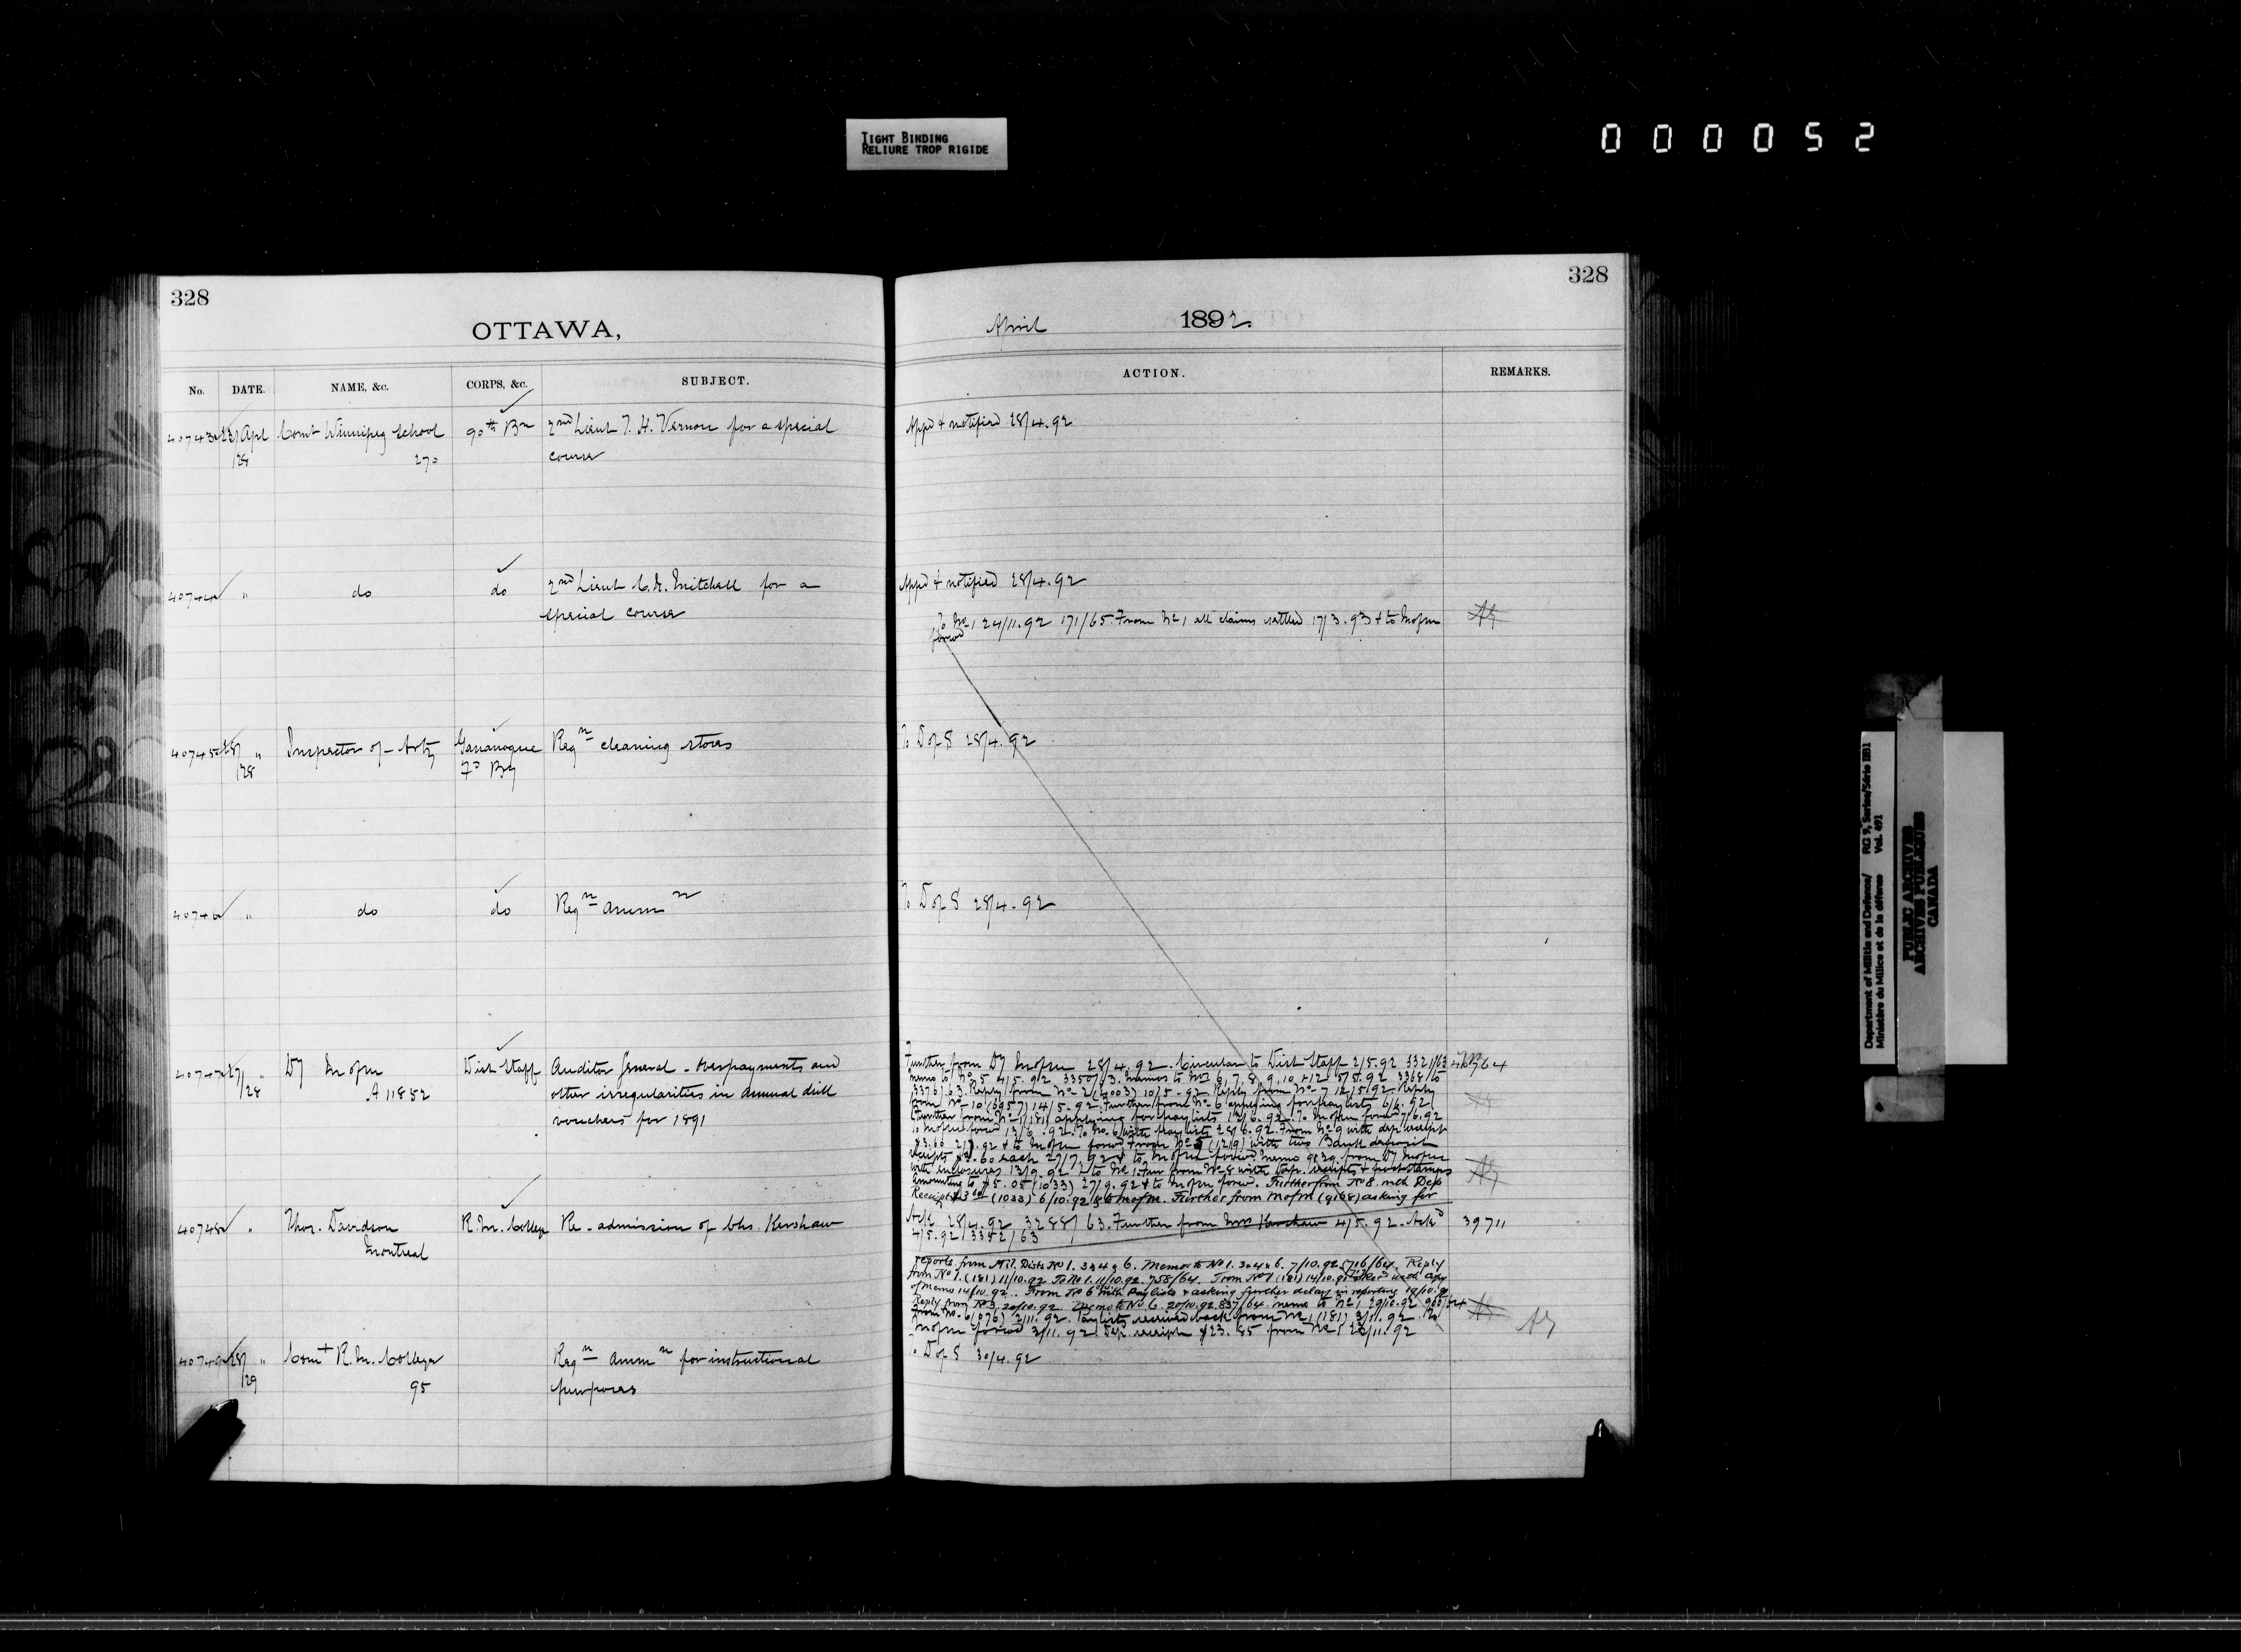 TIGHT BINDING
RELIURE TROP RIGIDE
000052
328
OTTAWA,
No. DATE. NAME, &c. CORPS, &c. SUBJECT.
40743 23/Apl Comt Winnipeg School 90th Bn 2nd Lieut T. H. Vernon for a special
/28 270 course
40744 " do do 2nd Lieut C. H. Mitchell for a
special course
40745 28/ " Inspector of Arty Gananoque Regn cleaning stores
/28 Fd By
40746 " do do Regn Ammn
40747 27/ " DM of M Dist Staff Auditor General - overpayments and
/28 A 11852 other irregularities in Annual drill
vouchers for 1891
40748 " Thos. Davidson R. M. College Re-admission of Chs. Kershaw
Montreal
40749 28/ " Comt R. M. College Regn Ammn for instructional
/29 95 purposes
328
April 1892.
ACTION. REMARKS.
Appd & notified 28/4.92
Appd & notified 28/4.92
To No 1 24/11.92 171/65. From No 1 all claims settled 17/3.93 & to M of M
forwd
To D of S 28/4.92
To D of S 28/4.92
Further from DM of M 28/4.92. Circular to Dist Staff 2/5.92 3321/63
memo to No 5 4/5.92 3350/63. memos to Nos 6, 7, 8, 9, 10 & 12 5/5.92 3368 to
3373/63. Reply from No 2 10/5.92 Reply from No 7 12/5/92 Reply
from No 10 (3957) 14/5.92. Further from No 6 applying for pay lists 6/6.92
Further from No 1 (181) applying for pay lists To M of M forwd 7/6.92
To M of M forwd 13/6.92. To No. 6 with pay lists 28/6.92. From No 9 with dep. receipt
& to M of M forwd From No 5 (1219) with two Bank deposit
receipts $3.60 each 27/7.92 & to M of M forwd memo from DM of M
with enclosures 13/9.92 & to No 1. Fur from No 8 with dep. receipts & post stamps
amounting to $5.05 (1033) 27/9.92 & to M of M forwd. Further from No 8. with Dep
Receipt (1033) 6/10.92 & to M of M. Further from M of M (9168) asking for
Ack 28/4.92 3288/63. Further from Mr Kershaw 4/5.92. Ackd 39711
4/5.92 3352/63
reports from Mil. Dists No 1. 3 & 4 & 6. Memos to No 1. 3 & 4 & 6. 7/10.92 716/64. Reply
from No 1. (181) 11/10.92 To No 1. 11/10.92. 758/64. From No 1 (181) 14/10.92 with copy
of memo 14/10.92. From No 6 with Pay Lists & asking further delay in reporting 19/10.92
Reply from No 3, 20/10.92. Memo to No 6. 20/10.92. 837/64. memo to No 1 29/10.92 960/64
From No. 6 (076) 2/11.92. Pay lists received back from No 1 (181) 3/11.92. To
M of M forwd 3/11.92. Dep. receipt $23.85 from No 1 23/11.92
To D of S 30/4.92
Department of Militia and Defence/ RG 9, Series/Série IIB1
Ministère du Milice et de la défense Vol. 691
PUBLIC ARCHIVES
ARCHIVES PUBLIQUES
CANADA